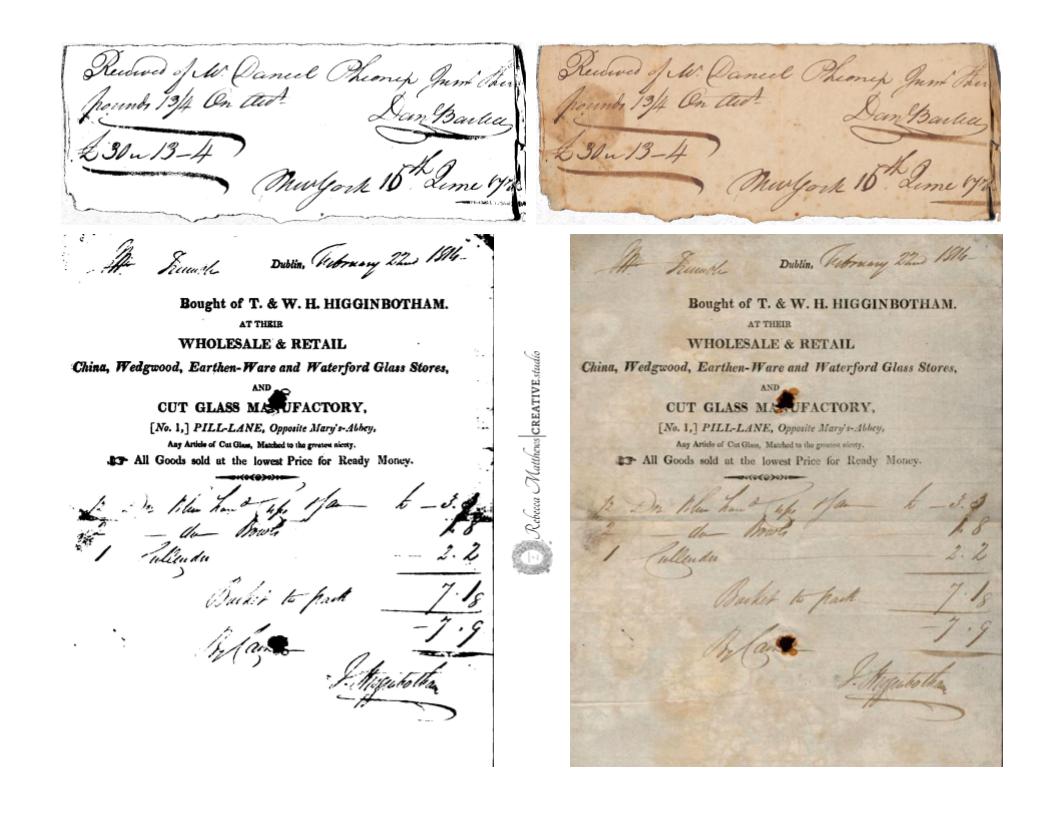 Received of Mr. Daniel Phoenix
pounds 13/4 On Acct.
£30 " 13 – 4
New York 15th June
Received of Mr. Daniel Phoenix
pounds 13/4 On Acct.
£30 " 13 – 4
New York 15th June
Dublin, February 22nd 1816
Bought of T. & W. H. HIGGINBOTHAM.
AT THEIR
WHOLESALE & RETAIL
China, Wedgwood, Earthen-Ware and Waterford Glass Stores,
AND
CUT GLASS MANUFACTORY,
[No. 1,] PILL-LANE, Opposite Mary's-Abbey,
Any Article of Cut Glass, Matched to the greatest nicety.
☞ All Goods sold at the lowest Price for Ready Money.
12
2 – do Bowls 1.8
1 Cullender 2.2
Basket to pack
7.9
J. Higginbotham
Rebecca Matthews|CREATIVEstudio
Dublin, February 22nd 1816
Bought of T. & W. H. HIGGINBOTHAM.
AT THEIR
WHOLESALE & RETAIL
China, Wedgwood, Earthen-Ware and Waterford Glass Stores,
AND
CUT GLASS MANUFACTORY,
[No. 1,] PILL-LANE, Opposite Mary's-Abbey,
Any Article of Cut Glass, Matched to the greatest nicety.
☞ All Goods sold at the lowest Price for Ready Money.
12
2 – do Bowls 1.8
1 Cullender 2.2
Basket to pack
7.9
J. Higginbotham